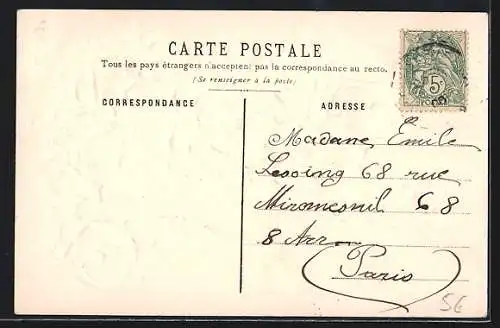 CARTE POSTALE
Tous les pays étrangers n'acceptent pas la correspondance au recto.
(Se renseigner à la poste)
CORRESPONDANCE
ADRESSE
Madame Emile
Lessing 68 rue
Miromesnil 68
8 Arr
Paris
5
5€